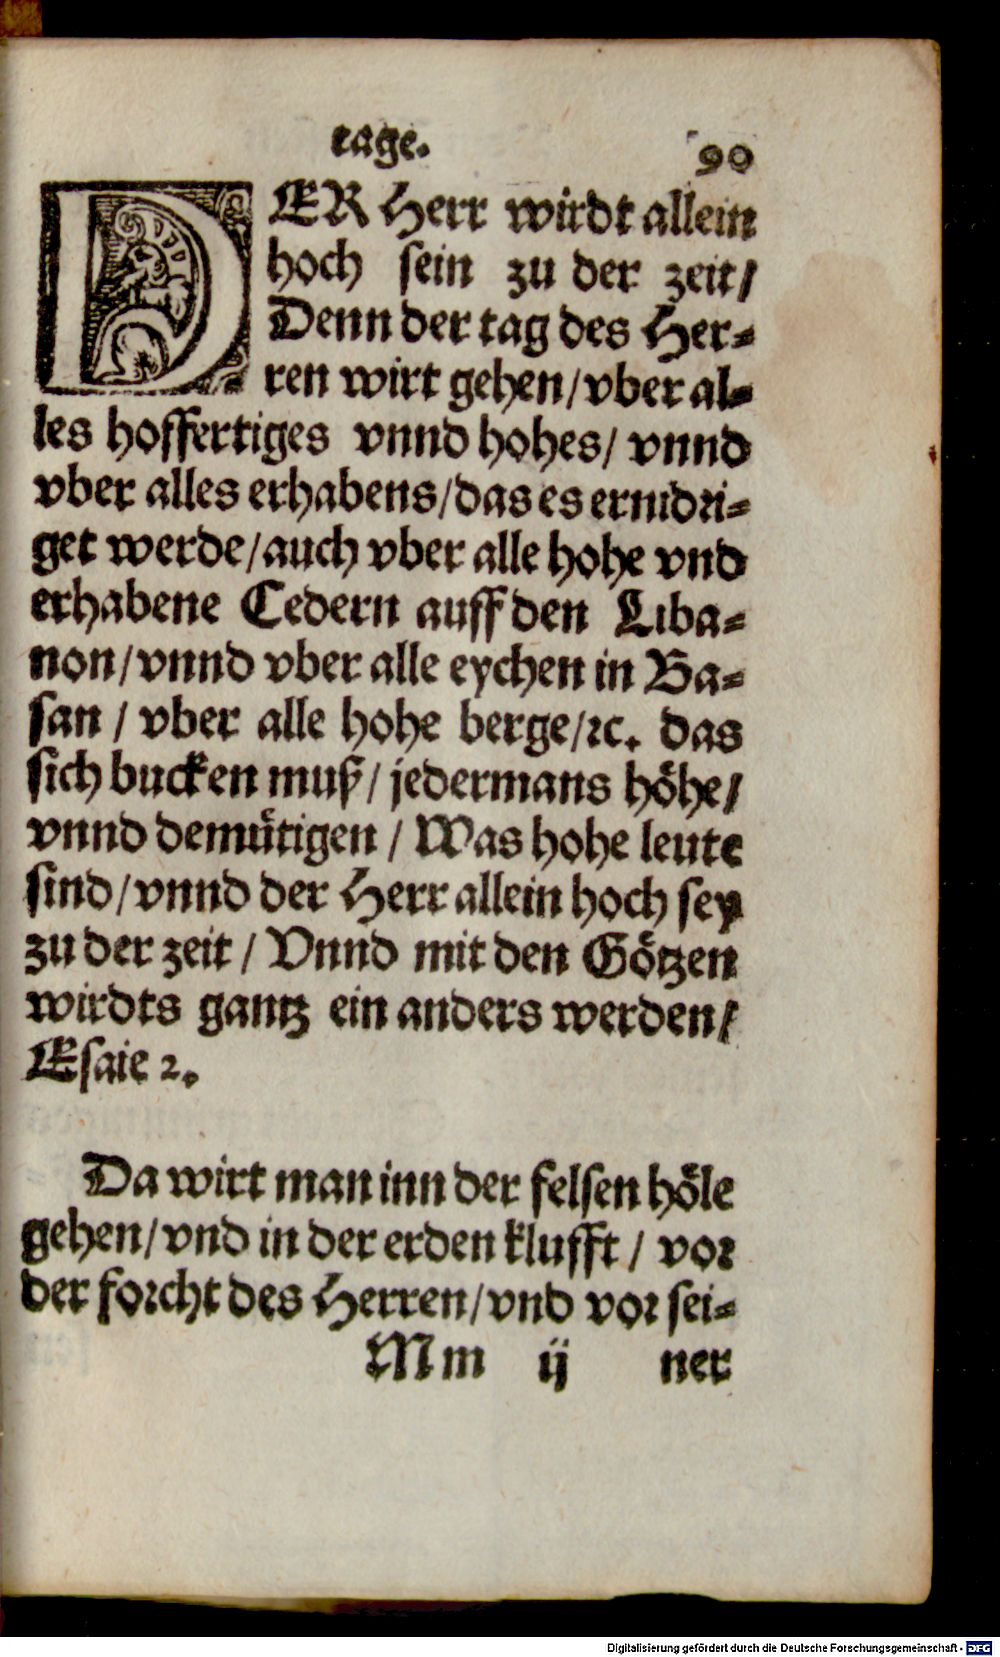 tage.
90
DER Herr wirdt allein
hoch sein zu der zeit/
Denn der tag des Her⸗
ren wirt gehen/vber al⸗
les hoffertiges vnnd hohes/ vnnd
vber alles erhabens/das es ernidri⸗
get werde/auch vber alle hohe vnd
erhabene Cedern auff den Liba⸗
non/vnnd vber alle eychen in Ba⸗
san / vber alle hohe berge/ꝛc. das
sich bucken muß/ jedermans höhe/
vnnd demütigen / Was hohe leute
sind/vnnd der Herr allein hoch sey
zu der zeit / Vnnd mit den Götzen
wirdts gantz ein anders werden/
Esaie 2.
Da wirt man inn der felsen höle
gehen/vnd in der erden klufft / vor
der forcht des Herren/vnd vor sei⸗
Mm ij ner
Digitalisierung gefördert durch die Deutsche Forschungsgemeinschaft - DFG